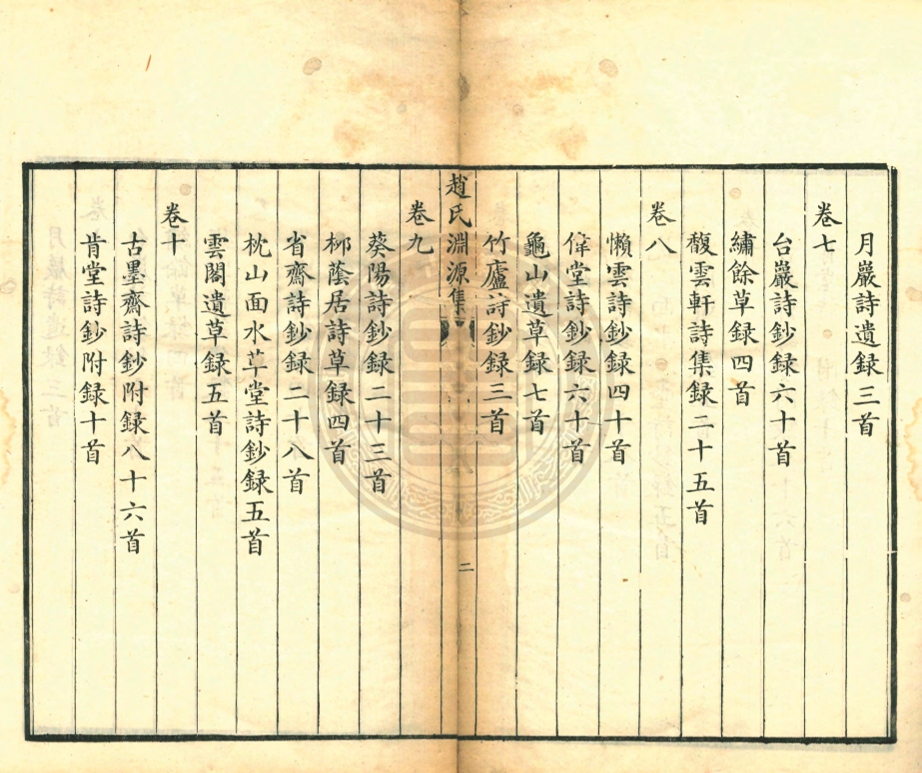 月巖詩遺録三首
卷七
台巖詩鈔録六十首
繡餘草録四首
馥雲軒詩集録二十五首
卷八
懶雲詩鈔録四十首
偉堂詩鈔録六十首
龜山遺草録七首
竹廬詩鈔録三首
趙氏淵源集
二
卷九
葵陽詩鈔録二十三首
柳蔭居詩草録四首
省齋詩鈔録二十八首
枕山面水艸堂詩鈔録五首
雲閣遺草録五首
卷十
古墨齋詩鈔附録八十六首
肯堂詩鈔附録十首